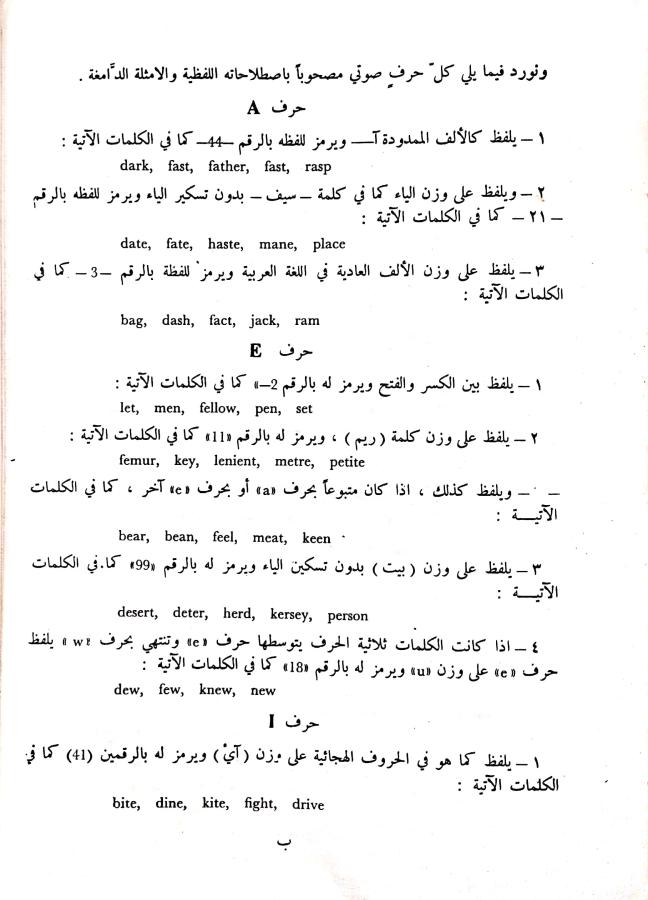 ونورد فيما يلي كلّ حرفٍ صوتي مصحوباً باصطلاحاته اللفظية والامثلة الدَّامغة .
حرف A
١ – يلفظ كالألف الممدودة آ— ويرمز للفظه بالرقم –44– كما في الكلمات الآتية :
dark, fast, father, fast, rasp
٢ – ويلفظ على وزن الياء كما في كلمة – سيف – بدون تسكير الياء ويرمز للفظه بالرقم
– ٢١ – كما في الكلمات الآتية :
date, fate, haste, mane, place
٣ – يلفظ على وزن الألف العادية في اللغة العربية ويرمز للفظة بالرقم –3– كما في
الكلمات الآتية :
bag, dash, fact, jack, ram
حرف E
١ – يلفظ بين الكسر والفتح ويرمز له بالرقم 2–» كما في الكلمات الآتية :
let, men, fellow, pen, set
٢ – يلفظ على وزن كلمة ( ريم ) ، ويرمز له بالرقم «11» كما في الكلمات الآتية :
femur, key, lenient, metre, petite
– – ويلفظ كذلك ، اذا كان متبوعاً بحرف «a» أو بحرف «e» آخر ، كما في الكلمات
الآتيـــة :
bear, bean, feel, meat, keen
٣ – يلفظ على وزن ( بيت ) بدون تسكين الياء ويرمز له بالرقم «99» كما في الكلمات
الآتيـــة :
desert, deter, herd, kersey, person
٤ – اذا كانت الكلمات ثلاثية الحرف يتوسطها حرف «e» وتنتهي بحرف «w» يلفظ
حرف «e» على وزن «u» ويرمز له بالرقم «18» كما في الكلمات الآتية :
dew, few, knew, new
حرف I
١ – يلفظ كما هو في الحروف الهجائية على وزن ( آيْ ) ويرمز له بالرقمين (41) كما في
الكلمات الآتية :
bite, dine, kite, fight, drive
ب